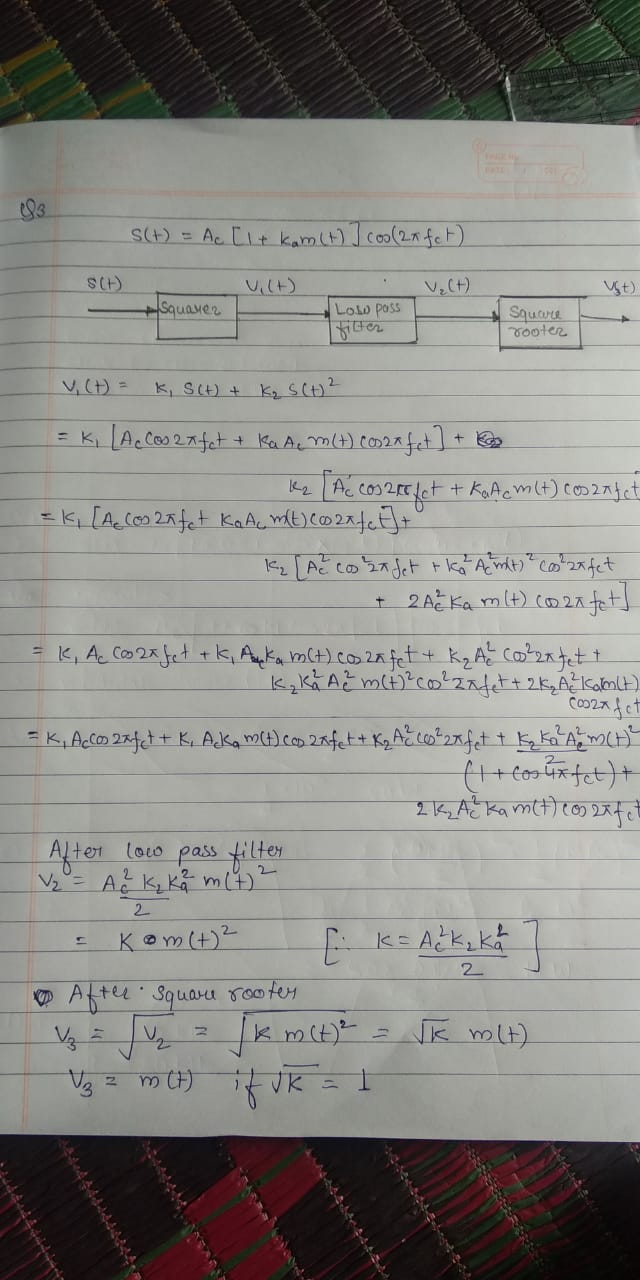 Q3
S(t) = Ac [1 + kam(t)] cos(2πfct)
S(t) V1(t) V2(t) V3(t)
Squarer Low pass filter Square rooter
V1(t) = K1 S(t) + K2 S(t)²
= K1 [Ac cos 2πfct + Ka Ac m(t) cos 2πfct] +
K2 [Ac cos 2πfct + KaAc m(t) cos 2πfct
= K1 [Ac cos 2πfct KaAc m(t) cos 2πfct] +
K2 [Ac² cos² 2πfct + Ka² Ac² m(t)² cos² 2πfct
+ 2Ac² Ka m(t) cos 2πfct]
= K1 Ac cos 2πfct + K1 Ac Ka m(t) cos 2πfct + K2 Ac² cos² 2πfct +
K2 Ka² Ac² m(t)² cos² 2πfct + 2K2 Ac² Ka m(t)
cos 2πfct
= K1 Ac cos 2πfct + K1 AcKa m(t) cos 2πfct + K2 Ac² cos² 2πfct + K2 Ka² Ac² m(t)²
2
(1 + cos 4πfct) +
2 K2 Ac² Ka m(t) cos 2πfct
After low pass filter
V2 = Ac² K2 Ka² m(t)²
2
= K m(t)² [∵ K = Ac² K2 Ka²]
2
After square rooter
V3 = √V2 = √K m(t)² = √K m(t)
V3 = m(t) if √K = 1